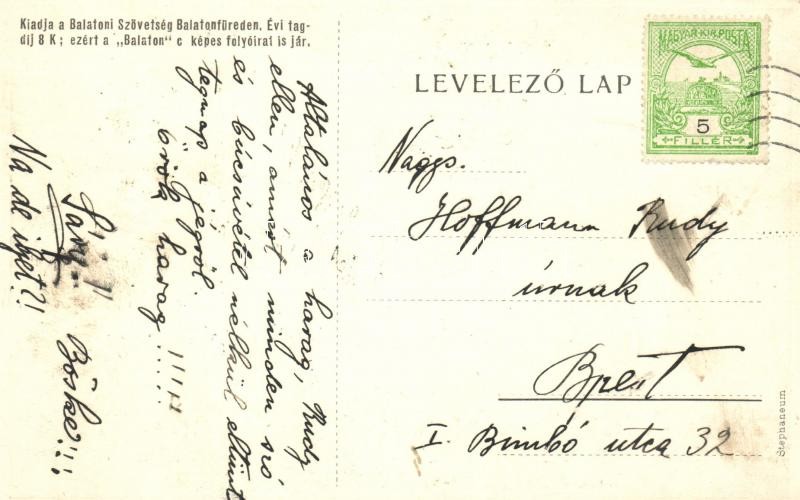 Kiadja a Balatoni Szövetség Balatonfüreden. Évi tag-
díj 8 K; ezért a „Balaton" c képes folyóirat is jár.
LEVELEZŐ LAP
MAGYAR KIR. POSTA
5
FILLÉR
Nagys.
Hoffmann Rudy
úrnak
Bpest
I Bimbó utca 32
Általános a harag, Rudy
ellen, amiért minden szó
és búcsúvétel nélkül eltünt
tegnap a jégről.
örök harag!!!!!
Böske!!!
Na de ilyet?!
Stephaneum